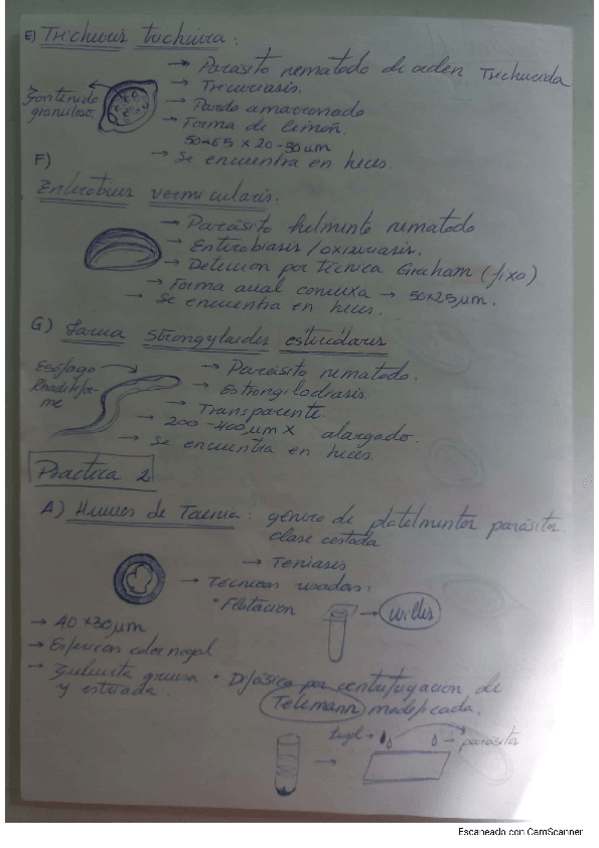 E) Trichuris trichiura:
→ Parásito nematodo de orden Trichurida
→ Tricuriasis.
→ Pardo amarronado
Contenido granuloso.
→ Forma de limón.
50-65 x 20-30 µm
→ Se encuentra en heces.
F)
Enterobius vermicularis.
→ Parásito helminto nematodo
→ Enterobiasis/oxiuriasis.
→ Deteccion por técnica Graham (fixo)
→ Forma oval convexa → 50x25 µm.
→ Se encuentra en heces.
G) Larva Strongyloides estercolaris
Esófago
→ Parásito nematodo.
→ Estrongilodiasis.
→ Transparente.
→ 200-400 µm x alargado.
→ Se encuentra en heces.
Practica 2
A) Huevos de Taenia: género de platelmintos parásitos
clase cestoda
→ Teniasis
→ Técnicas usadas:
• Flotacion → Willis
→ 40x30 µm
→ Esfericos color nogal
→ Cubierta gruesa
y estriada.
• Difásica por centrifugacion de
Telemann modificada.
Lugol → → parásitos